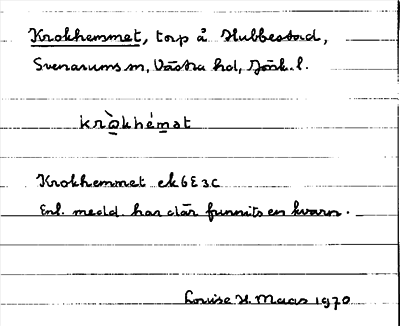 Krokhemmet, torp å Hubbestad,
Svenarums sn, Västra hd, Jönk. l.
krò̲khém̲at
Krokhemmet ek 6E3c
Enl. medd. har där funnits en kvarn.
Louise H. Maas 1970